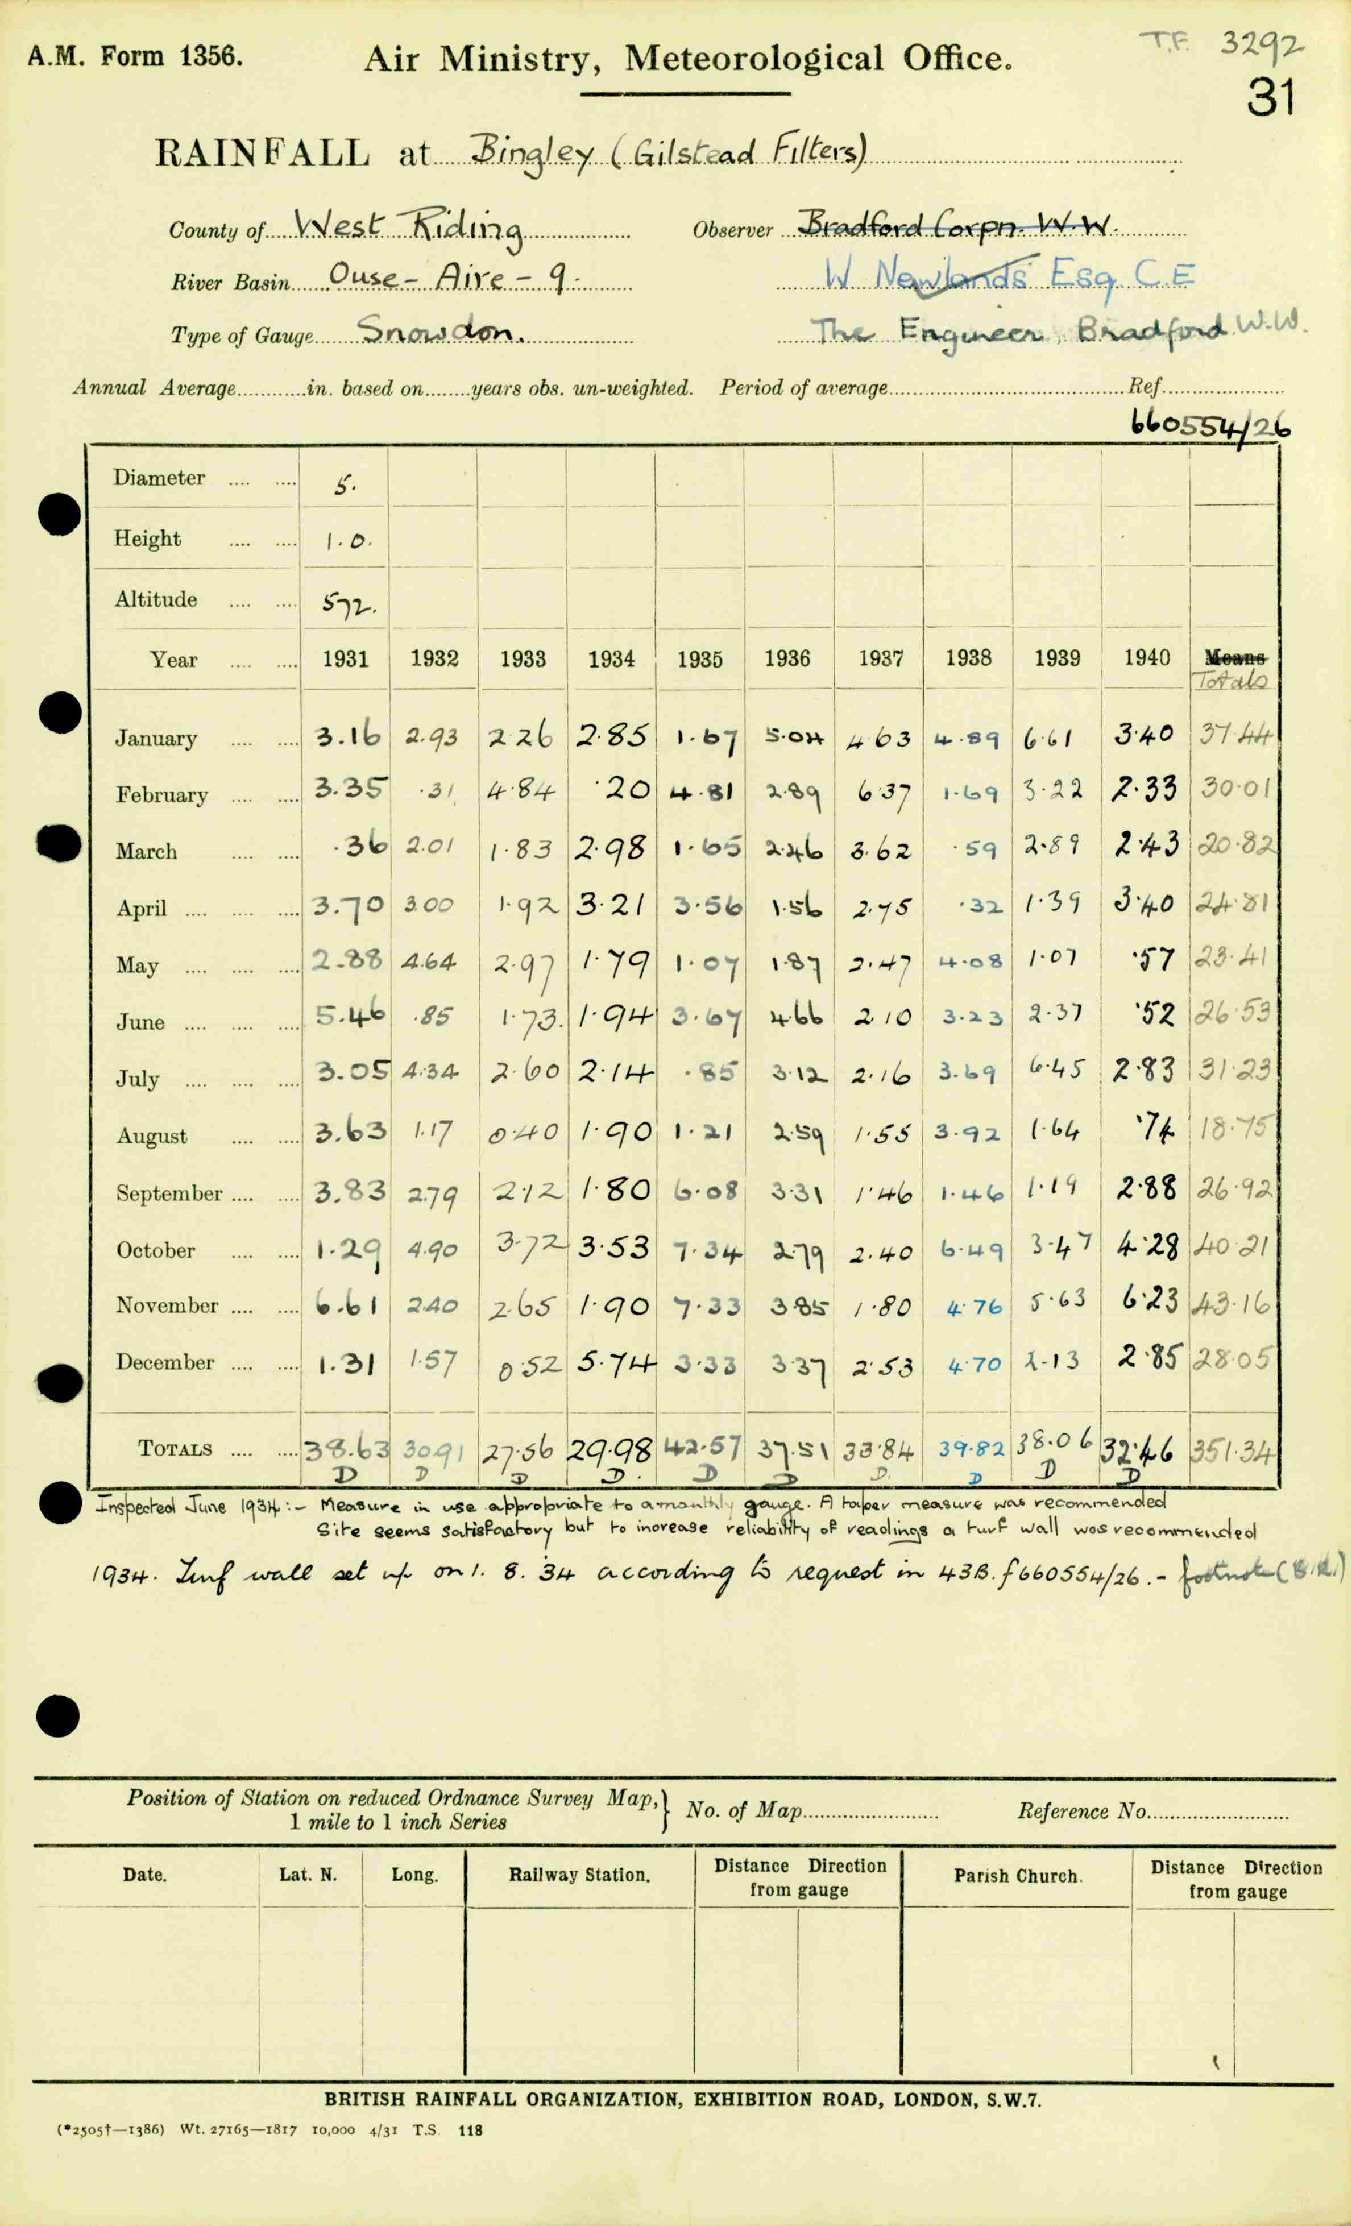 T.F. 3292
A.M. Form 1356. Air Ministry, Meteorological Office.
31
RAINFALL at Bingley (Gilstead Filters)
County of West Riding Observer Bradford Corpn. W.W.
River Basin Ouse - Aire - 9. W Newlands Esq. C.E
Type of Gauge Snowdon. The Engineer, Bradford W.W.
Annual Average in. based on years obs. un-weighted. Period of average Ref.
660554/26
Diameter 5.
Height 1.0.
Altitude 572.
Year 1931 1932 1933 1934 1935 1936 1937 1938 1939 1940 Means
Totals
January 3.16 2.93 2.26 2.85 1.67 5.04 4.63 4.89 6.61 3.40 37.44
February 3.35 .31 4.84 .20 4.81 2.89 6.37 1.69 3.22 2.33 30.01
March .36 2.01 1.83 2.98 1.65 2.46 3.62 .59 2.89 2.43 20.82
April 3.70 3.00 1.92 3.21 3.56 1.56 2.75 .32 1.39 3.40 24.81
May 2.88 4.64 2.97 1.79 1.07 1.87 2.47 4.08 1.07 .57 23.41
June 5.46 .85 1.73 1.94 3.67 4.66 2.10 3.23 2.37 .52 26.53
July 3.05 4.34 2.60 2.14 .85 3.12 2.16 3.69 6.45 2.83 31.23
August 3.63 1.17 0.40 1.90 1.21 2.59 1.55 3.92 1.64 .74 18.75
September 3.83 2.79 2.12 1.80 6.08 3.31 1.46 1.46 1.19 2.88 26.92
October 1.29 4.90 3.72 3.53 7.34 2.79 2.40 6.49 3.47 4.28 40.21
November 6.61 2.40 2.65 1.90 7.33 3.85 1.80 4.76 5.63 6.23 43.16
December 1.31 1.57 0.52 5.74 3.33 3.37 2.53 4.70 2.13 2.85 28.05
TOTALS 38.63 30.91 27.56 29.98 42.57 37.51 33.84 39.82 38.06 32.46 351.34
D D D D. D D D. D D D
Inspected June 1934:- Measure in use appropriate to a monthly gauge. A taper measure was recommended
Site seems satisfactory but to increase reliability of readings a turf wall was recommended
1934. Turf wall set up on 1. 8. 34 according to request in 43B. f 660554/26. - footnote (B.R.)
Position of Station on reduced Ordnance Survey Map, } No. of Map Reference No.
1 mile to 1 inch Series
Date. Lat. N. Long. Railway Station. Distance Direction Parish Church. Distance Direction
from gauge from gauge
BRITISH RAINFALL ORGANIZATION, EXHIBITION ROAD, LONDON, S.W.7.
(*2505†—1386) Wt. 27165—1817 10,000 4/31 T.S. 118